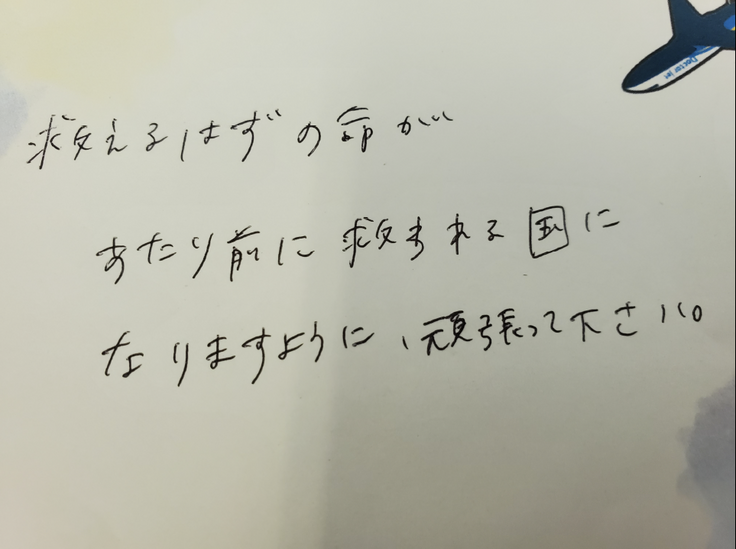 Doctor Jet
救えるはずの命が
あたり前に救まれる国に
なりますように、頑張って下さい。